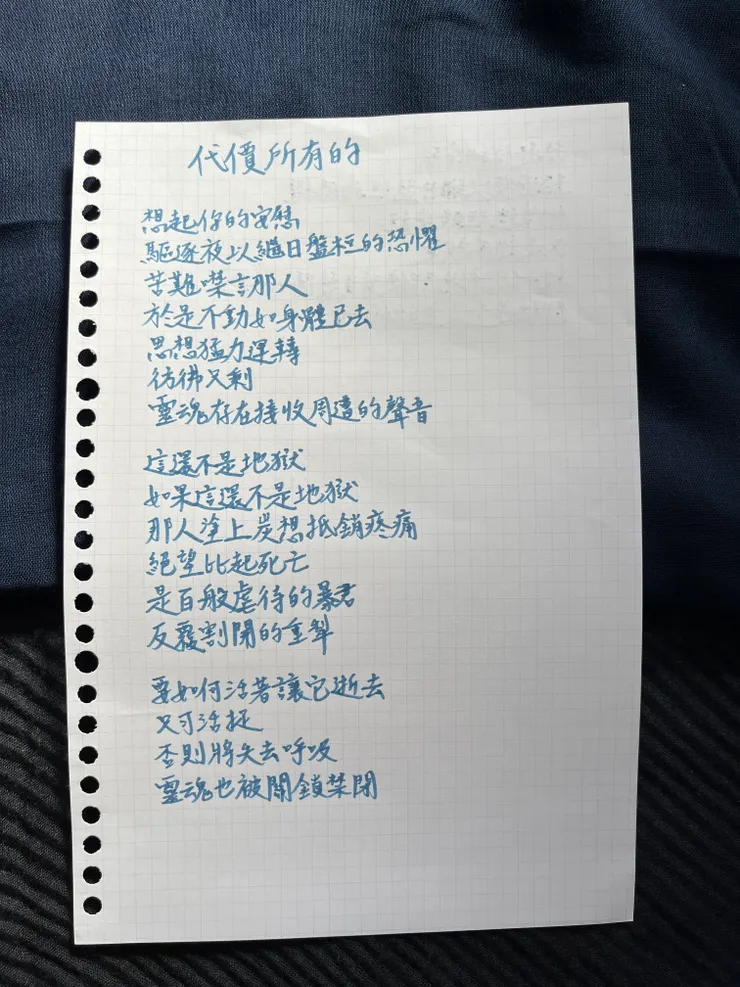 代價所有的
想起你的安慰
驅逐夜以繼日盤桓的恐懼
苦難噤言那人
於是不動如身體已去
思想猛力運轉
彷彿又剩
靈魂存在接收周遭的聲音
這還不是地獄
如果這還不是地獄
那人塗上炭想抵銷疼痛
絕望比起死亡
是百般虐待的暴君
反覆割開的重
要如何活著讓它逝去
又可活捉
否則將失去呼吸
靈魂也被關鎖禁閉